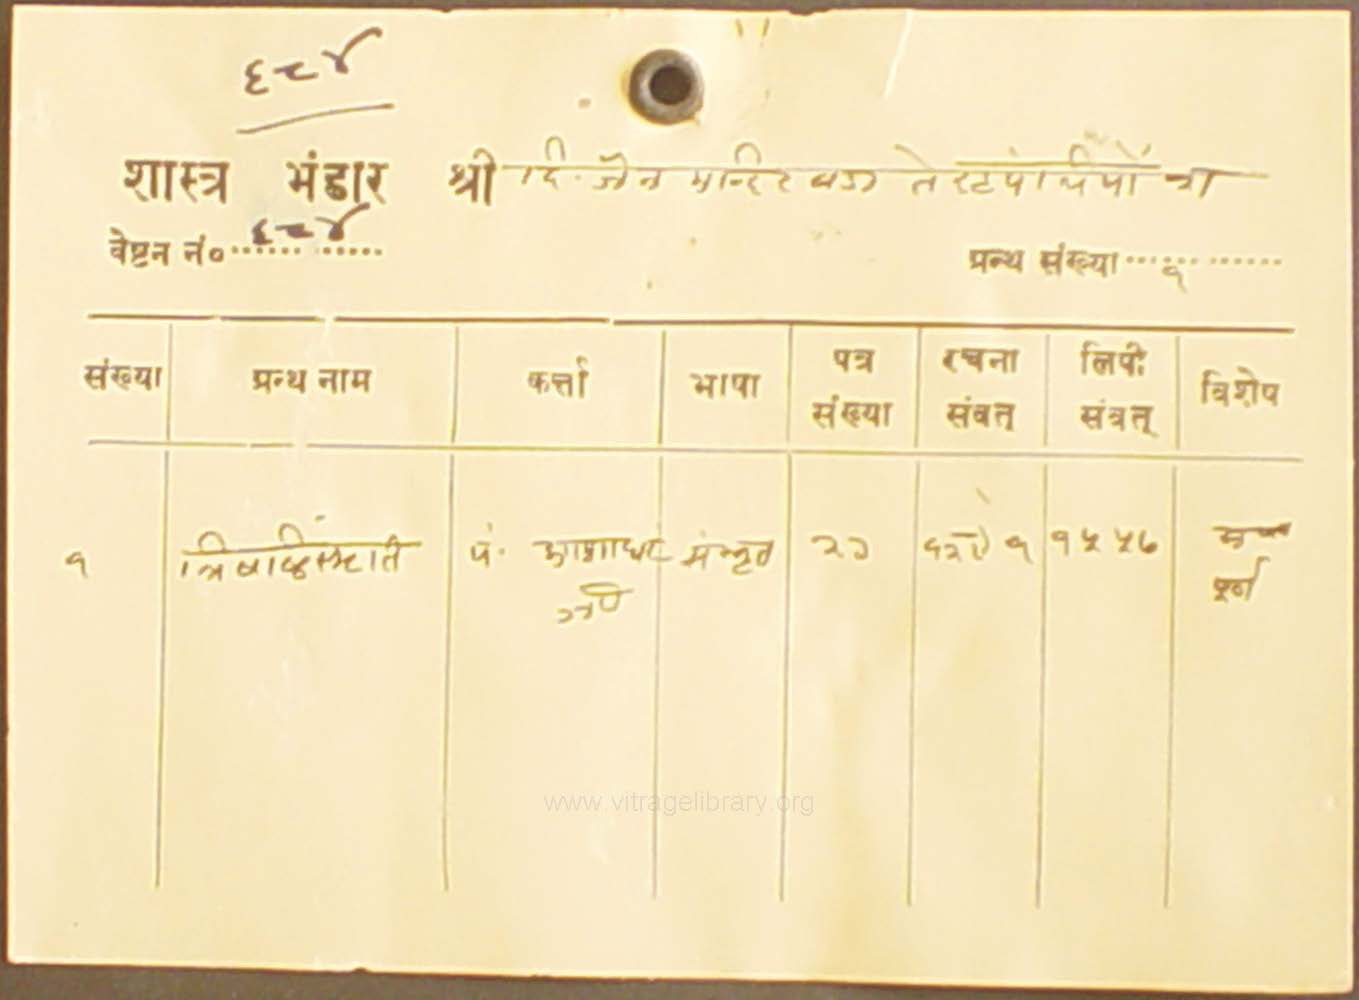 ६८४
शास्त्र भंडार श्री दि. जैन मन्दिर बडा तेरहपंथियों का
वेष्टन नं० ६८४ ग्रन्थ संख्या १
संख्या ग्रन्थ नाम कर्त्ता भाषा पत्र संख्या रचना संवत् लिपी संवत् विशेष
१ त्रिषष्ठिस्मृति पं. आशाधर संस्कृत २१ १५५७
पूर्ण
www.vitragelibrary.org